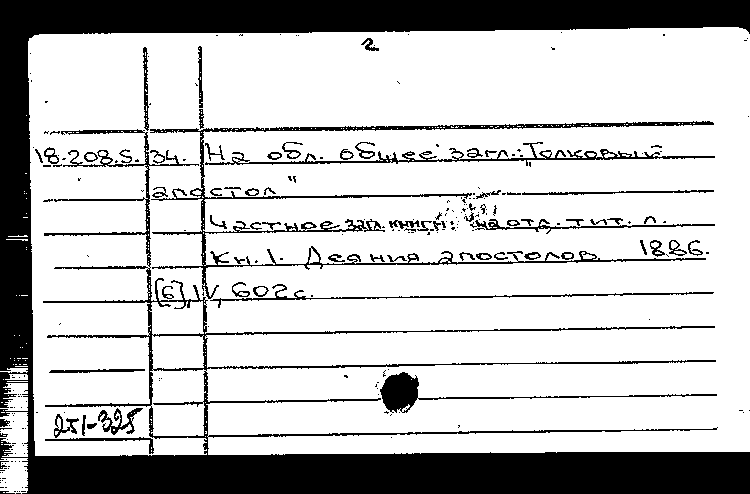 2
18.208.5.34. На обл. общее загл.: "Толковый
апостол"
Частное загл. книги на отд. тит. л.
Кн. 1. Деяния апостолов 1886.
[6], IV, 602 с.
251-325